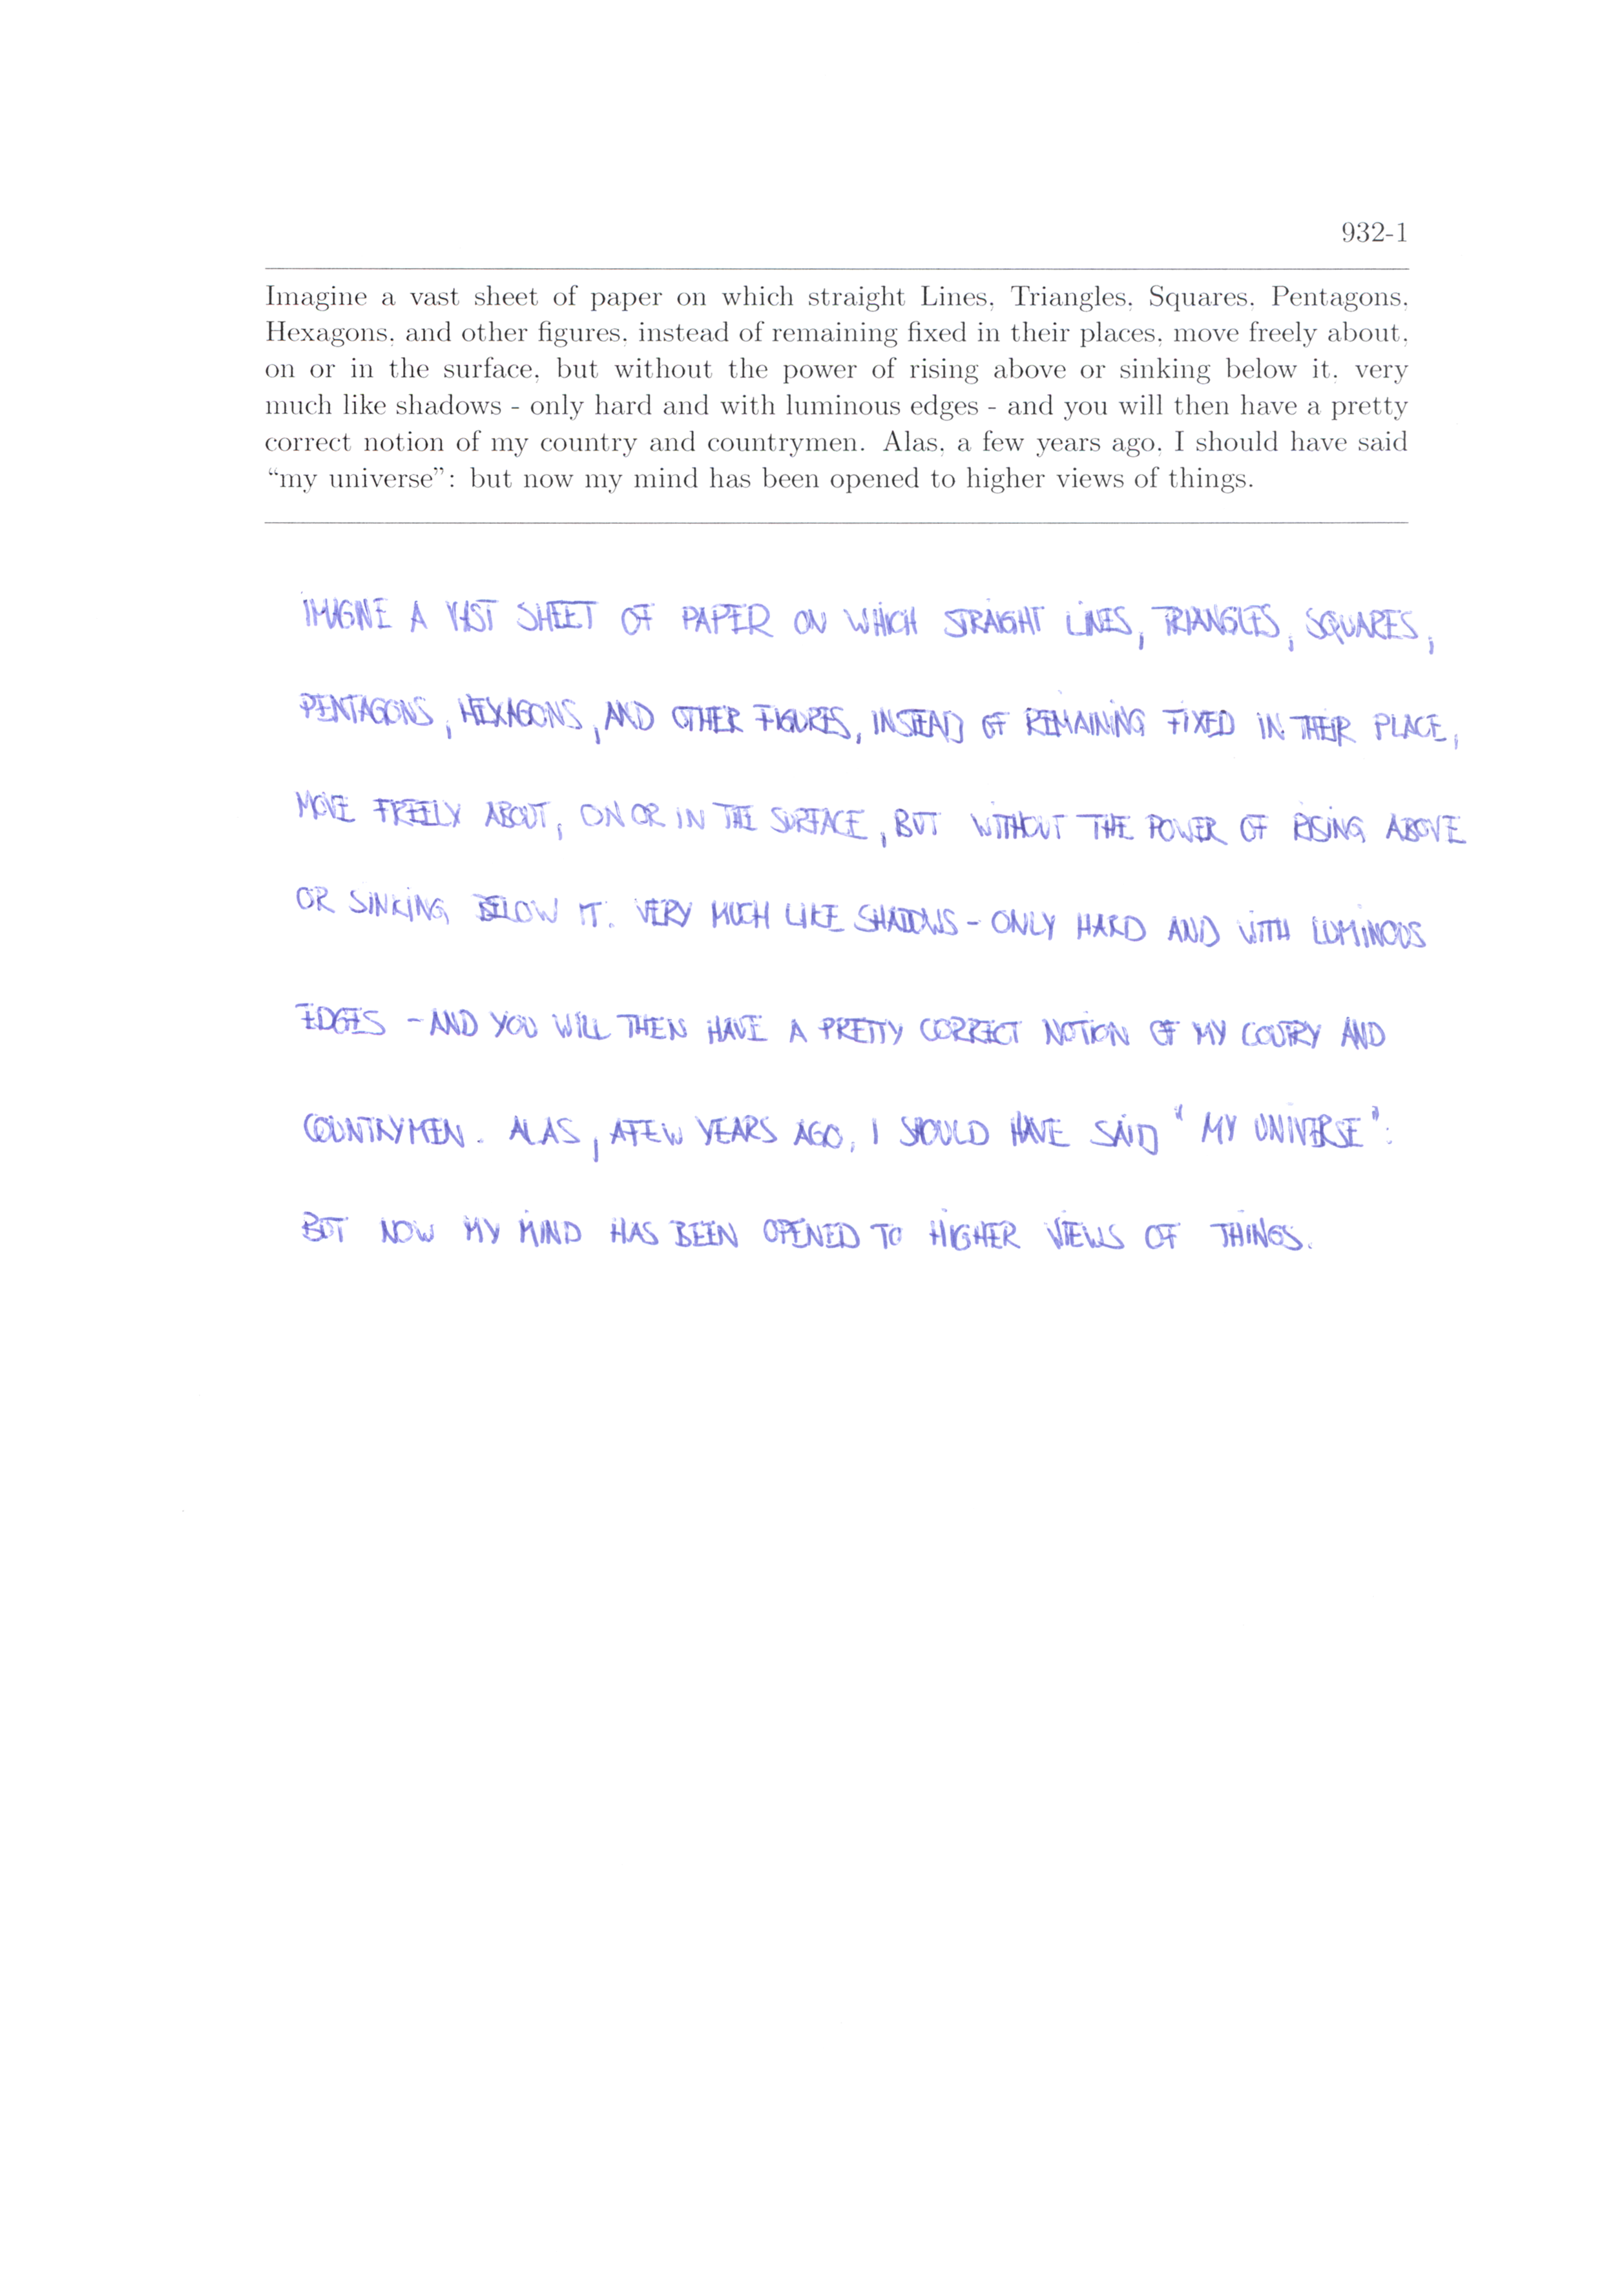 932-1
Imagine a vast sheet of paper on which straight Lines, Triangles, Squares, Pentagons,
Hexagons, and other figures, instead of remaining fixed in their places, move freely about,
on or in the surface, but without the power of rising above or sinking below it, very
much like shadows - only hard and with luminous edges - and you will then have a pretty
correct notion of my country and countrymen. Alas, a few years ago, I should have said
“my universe”: but now my mind has been opened to higher views of things.
IMAGINE A VAST SHEET OF PAPER ON WHICH STRAIGHT LINES, TRIANGLES, SQUARES,
PENTAGONS, HEXAGONS, AND OTHER FIGURES, INSTEAD OF REMAINING FIXED IN THEIR PLACE,
MOVE FREELY ABOUT, ON OR IN THE SURFACE, BUT WITHOUT THE POWER OF RISING ABOVE
OR SINKING BELOW IT. VERY MUCH LIKE SHADOWS - ONLY HARD AND WITH LUMINOUS
EDGES - AND YOU WILL THEN HAVE A PRETTY CORRECT NOTION OF MY COUTRY AND
COUNTRYMEN. ALAS, A FEW YEARS AGO, I SHOULD HAVE SAID "MY UNIVERSE":
BUT NOW MY MIND HAS BEEN OPENED TO HIGHER VIEWS OF THINGS.